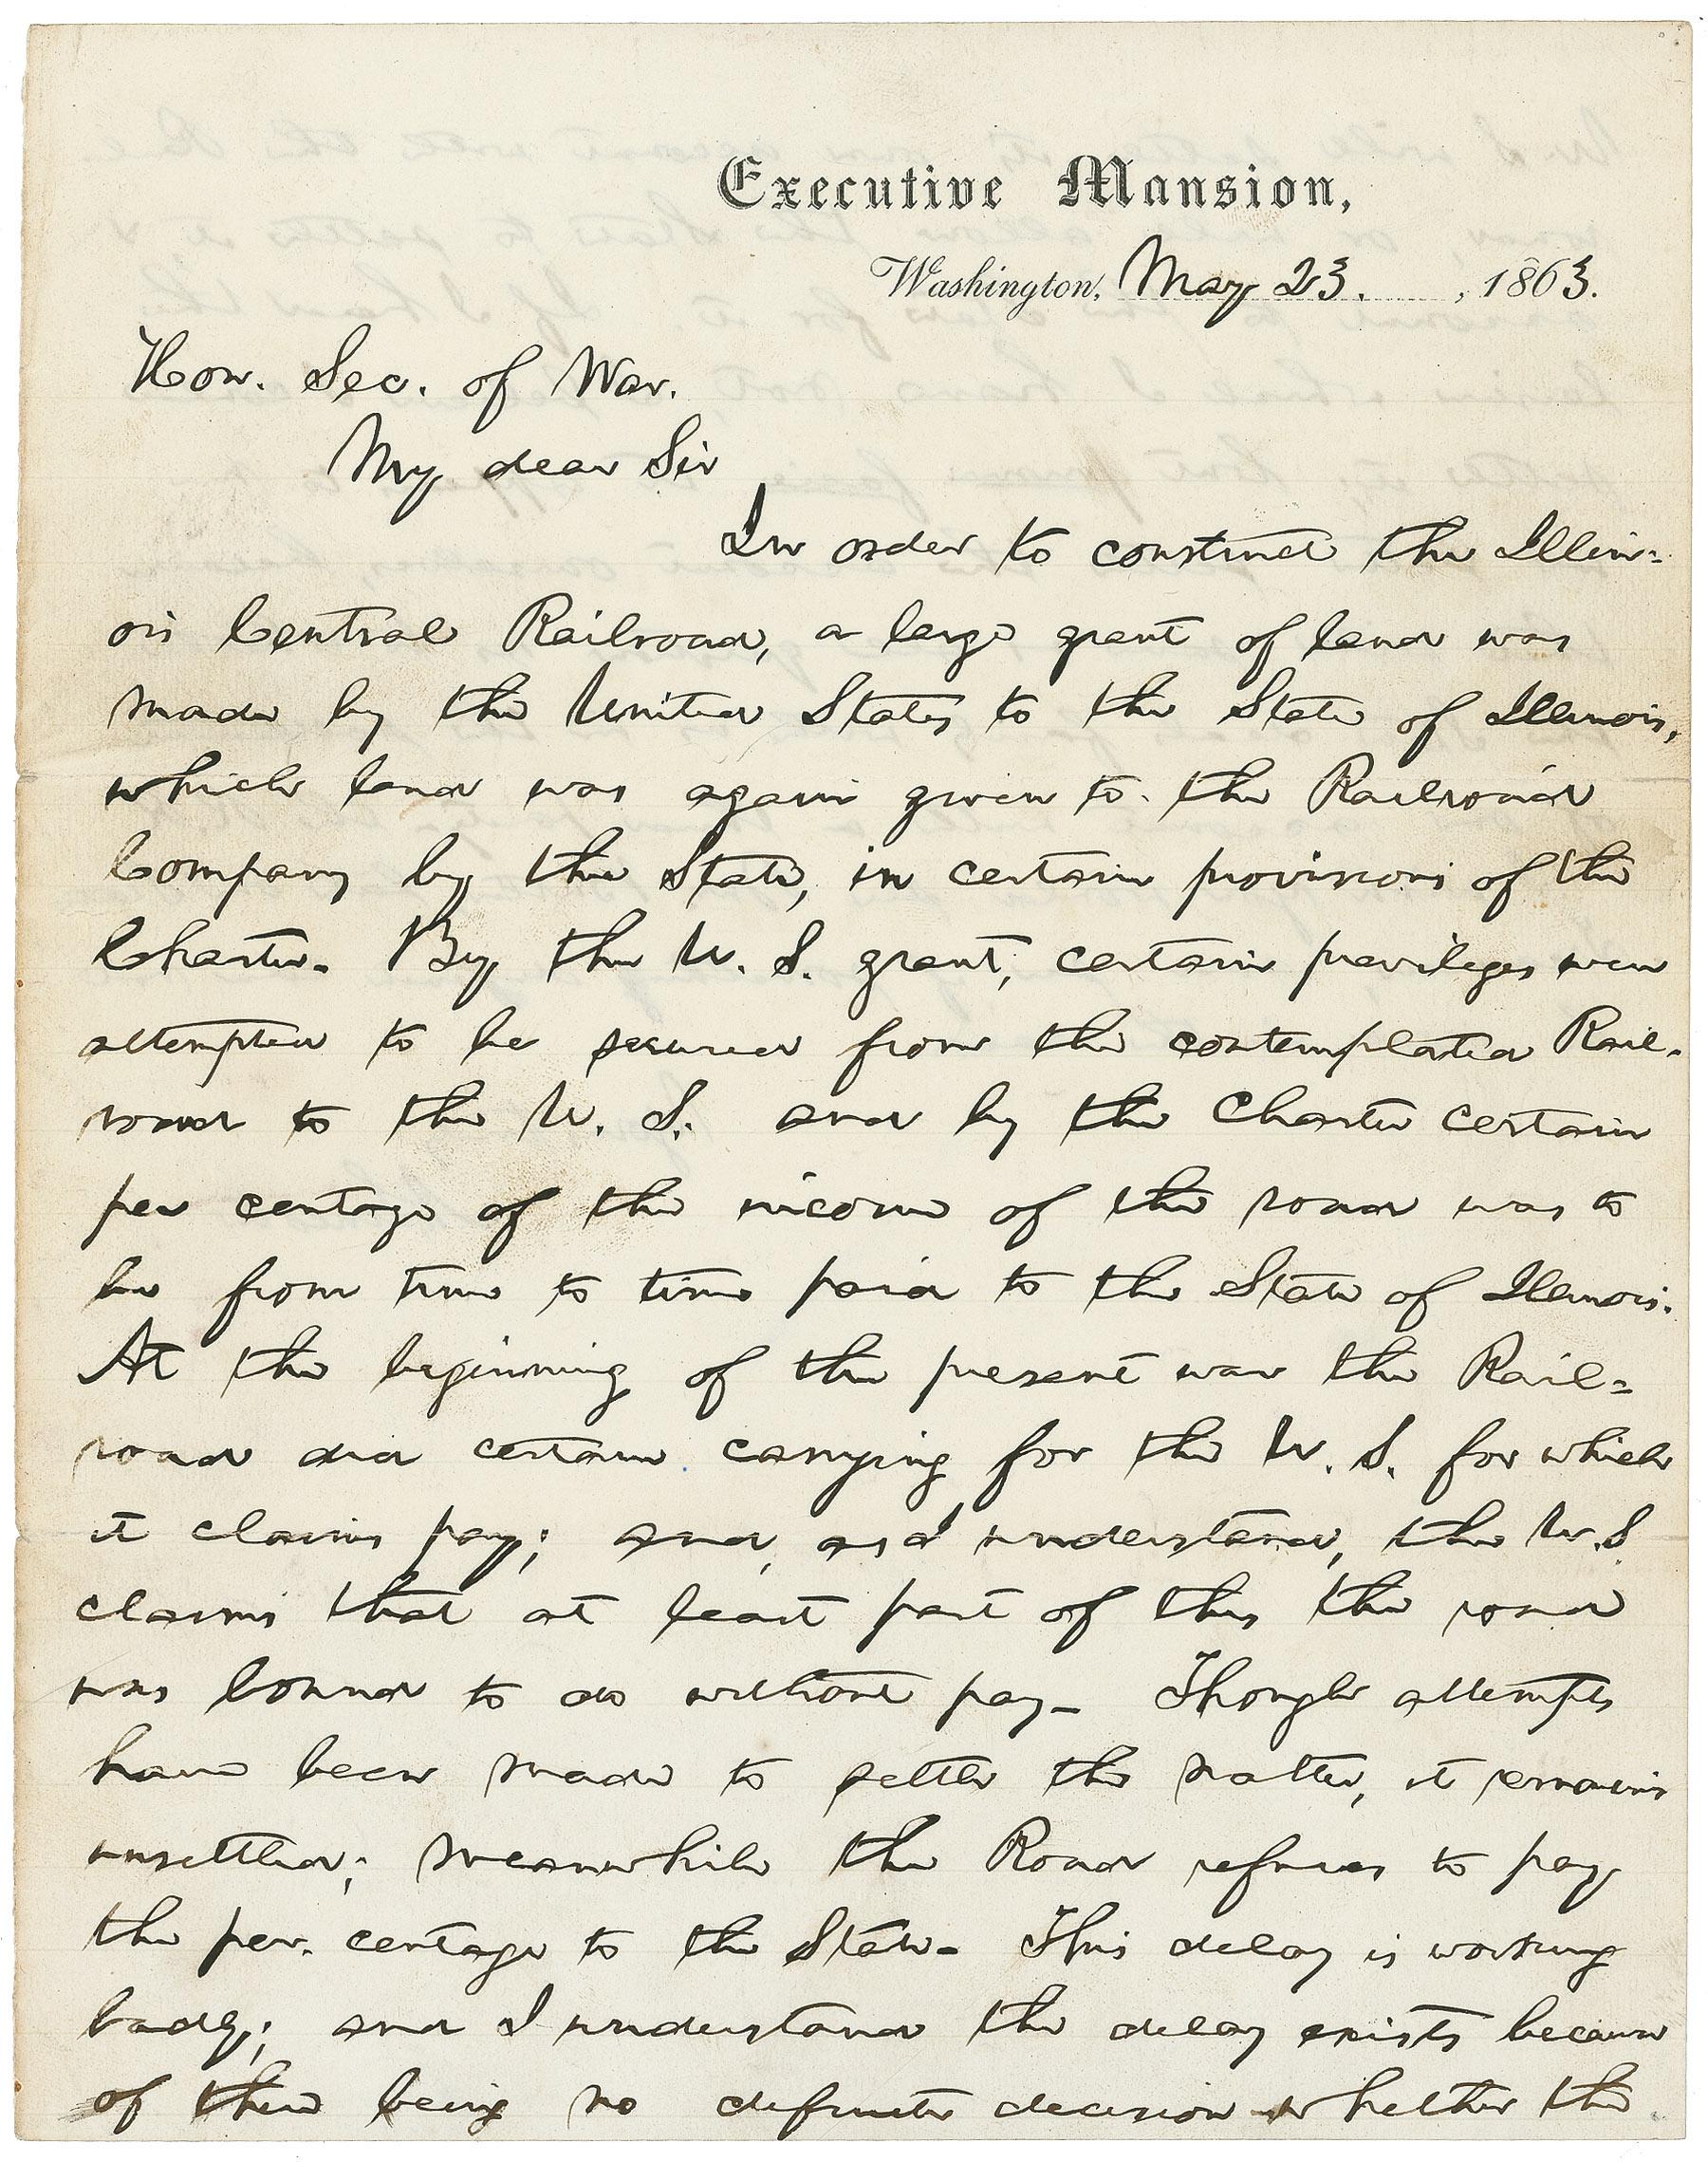 Executive Mansion,
Washington, May 23. , 1863.
Hon. Sec. of War.
My dear Sir
In order to construct the Illin=
ois Central Railroad, a large grant of land was
made by the United States to the State of Illinois,
which land was again given to the Railroad
Company by the State, in certain provisions of the
Charter. By the U. S. grant, certain previleges were
attempted to be secured from the contemplated Rail-
road to the U. S. and by the Charter certain
per centage of the income of the road was to
be from time to time paid to the State of Illinois.
At the beginning of the present war the Rail=
road did certain carrying for the U. S. for which
it claims pay; and, as I understand, the U. S
claims that at least part of this the road
was bound to do without pay- Though attempts
have been made to settle the matter, it remains
unsettled; meanwhile the Road refuses to pay
the per. centage to the State- This delay is working
badly; and I understand the delay exists because
of there being no definite decision whether the